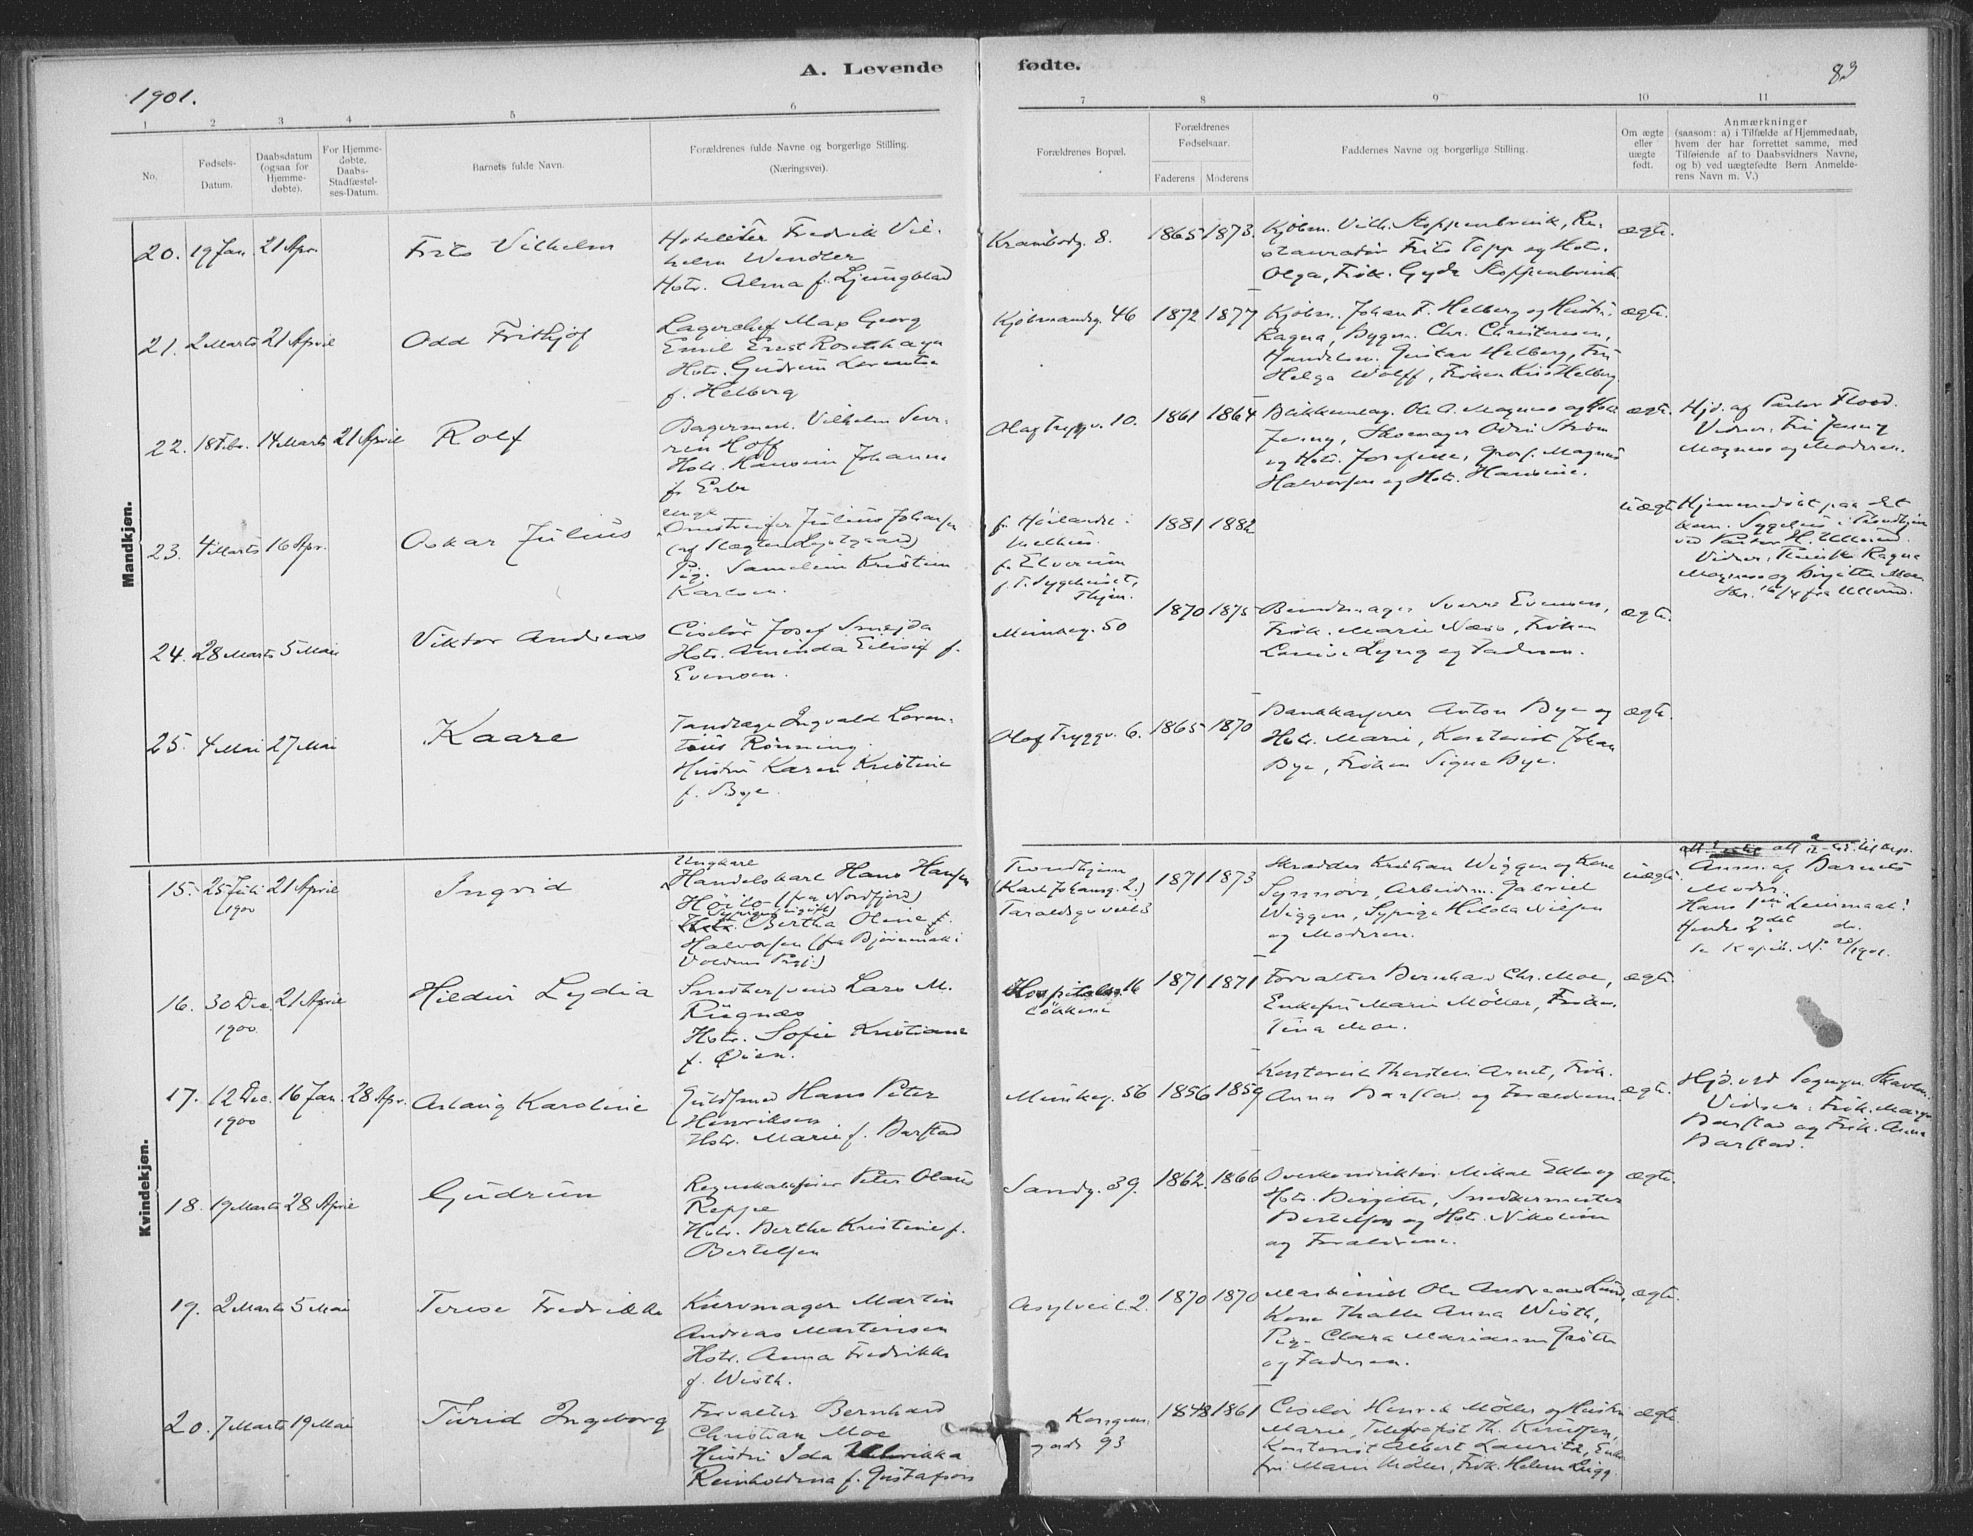 A. Levende
fødte.
83
1901.
1
2
3
4
5
6
7
8
9
10
11
No.
Fødsels-
Datum.
Daabsdatum
(ogsaa for
Hjemme-
døbte).
For Hjemme-
døbte,
Daabs-
Stadfæstel-
ses-Datum.
Barnets fulde Navn.
Forældrenes fulde Navne og borgerlige Stilling.
(Næringsvei).
Forældrenes Bopæl.
Forældrenes
Fødselsaar.
Faderens
Moderens
Faddernes Navne og borgerlige Stilling.
Om ægte
eller
uægte
født.
Anmærkninger
(saasom: a) i Tilfælde af Hjemmedaab,
hvem der har forrettet samme, med
Tilføiende af to Daabsvidners Navne,
og b) ved uægtefødte Børn Anmelde-
rens Navn m. V.)
Mandkjøn.
20. 19 Jan. 21 Apr. Frits Vilhelm
Hoteleier Fredrik Vil-
helm Wendler
Hstr. Alma f. Ljungblad
Krambodg. 8. 1865 1873.
Kjøbm. Vilh. Stoppenbrink, Re-
stauratør Frits Topp og Hstr.
Olga, Frøk. Gyda Stoppenbrink
ægte.
21. 2 Marts 21 April Odd Frithjof
Lagerchef Max Georg
Emil Ernst Rosenhayn
Hstr. Gudrun Laurentse
f. Helberg
Kjøbmandsg. 46 1872 1877
Kjøbm. Johan F. Helberg og Hustru
Ragna, Bygm. Chr. Christensen,
Handelsm. Gustav Helberg, Frk.
Helga Wolff, Frøken Kris Helberg
ægte.
22. 18 Febr. 14 Marts 21 April Rolf
Bagermest. Vilhelm Seve-
rin Hoff
Hstr. Hansine Johanne
f. Erbe
Olaf Trygv. 10. 1861 1864
Blikkenslag. Ole A. Magnus og Hstr.
Jenny, Skomager Odin Strøm
og Hstr. Josefine, Gros. Magnus
Halvorsen og Hstr. Hansine.
ægte.
Hjd. af Pastor Flood.
Vidner: Fru Jenny
Magnus og Moderen.
23. 4 Marts 16 Apr. Oskar Julius
Ungk.
Julius Johansen
Pig. Samuline Kristine
Karlsen.
f. Høilandet i
Melhus.
f. Elverum
f. T. Sygehuset,
Thjem.
1881 1882
uægte
Hjemmedøbt paa det
kom. Sygehus i Trondhjem
ved Pastor H. Ullerud.
Magnus og Birgitte Moe
Skr. 16/4 fra Ullerud.
24. 28 Marts 5 Mai Viktor Andreas
Ciselør Josef Smejda
Hstr. Aminda Elisif f.
Evensen.
Munkeg. 50 1870 1875
Bundtmager Sverre Evensen,
Frøk. Marie Næss, Frøken
Louise Lyng og Faderen.
ægte.
25. 4 Mai 27 Mai Kaare
Tandlæge Ingvald Loren-
tius Rønning.
Hustru Karen Kristine
f. Bye.
Olaf Tryggv. 6. 1865 1870
Bankkasserer Anton Bye og
Hstr. Marie, Kontorist Johan
Bye, Frøken Signe Bye.
ægte.
Kvindekjøn.
15. 25 Juli 1900 21 April Ingvid
Ungkarl
Handelskarl Hans Hansen
(fra Nordfjord)
Bertha Oline f.
Halvorsen (fra Bjørnemark i
Trondhjem
(Karl Johansg. 2.)
1871 1873
Skrædder Kristian Wiggen og Kone
Synnøve, Arbeidsm. Gabriel
Wiggen, Sypige Hilda Nilsen
og Moderen.
uægte
Anm. af Barnets
Moder.
Hans 1ste Leiermaal.
Hendes 2det do.
16. 30 Dec. 1900. 21 April Hildur Lydia
Snedkersvend Lars M.
Rugnæs
Hstr. Sofie Kristiane
f. Øien.
Hospitalsg. 16
Løkkene
1871 1871
Forvalter Bernhard Chr. Moe,
Enkefru Marie Möller, Frøken
Tina Moe.
ægte.
17. 12 Dec. 1900 16 Jan. 28 Apr. Aslaug Karoline
Guldsmed Hans Peter
Henriksen
Hstr. Marie f. Barstad
Munkeg. 56 1856 1859
Kontorist Thorstein Arnet, Frøk.
Anna Barstad og Forældrene.
ægte.
Vidner: Frøk. Margr.
Barstad og Frøk. Anna
Barstad.
18. 19 Marts 28 April Gudrun
Regnskabsfører Peter Olaus
Reppe
Hstr. Berthe Kristine f.
Bertelsen
Sandg. 39. 1862. 1866
Overkonduktør Mikal Ekle og
Hstr. Birgitte, Snedkermester
Bertelsen og Hstr. Nikoline
og Forældrene.
ægte.
19. 2 Marts 5 Mai Terese Fredrikke
Kurvmager Martin
Andreas Martinsen
Hstr. Anna Fredrikke
f. Wisth.
Asylveit. 2. 1870 1870
Maskinist Ole Andreas Lund,
Kone Thalle Anna Wisth,
Pig. Clara Marianne Grøtte
og Faderen.
ægte.
20. 7 Marts 19 Mai Turid Ingeborg
Forvalter Bernhard
Christian Moe
Hustru Ida Ulrikka
Reinholdina f. Gustafson
Kongens
gade 93
1878 1861
Ciselør Henrik Möller og Hustru
Marie, Telegrafist Th. Knudsen,
Kontorist Albert Lauritz, Enke-
fru Marie Möller, Frøk. Helene Rigg
ægte.